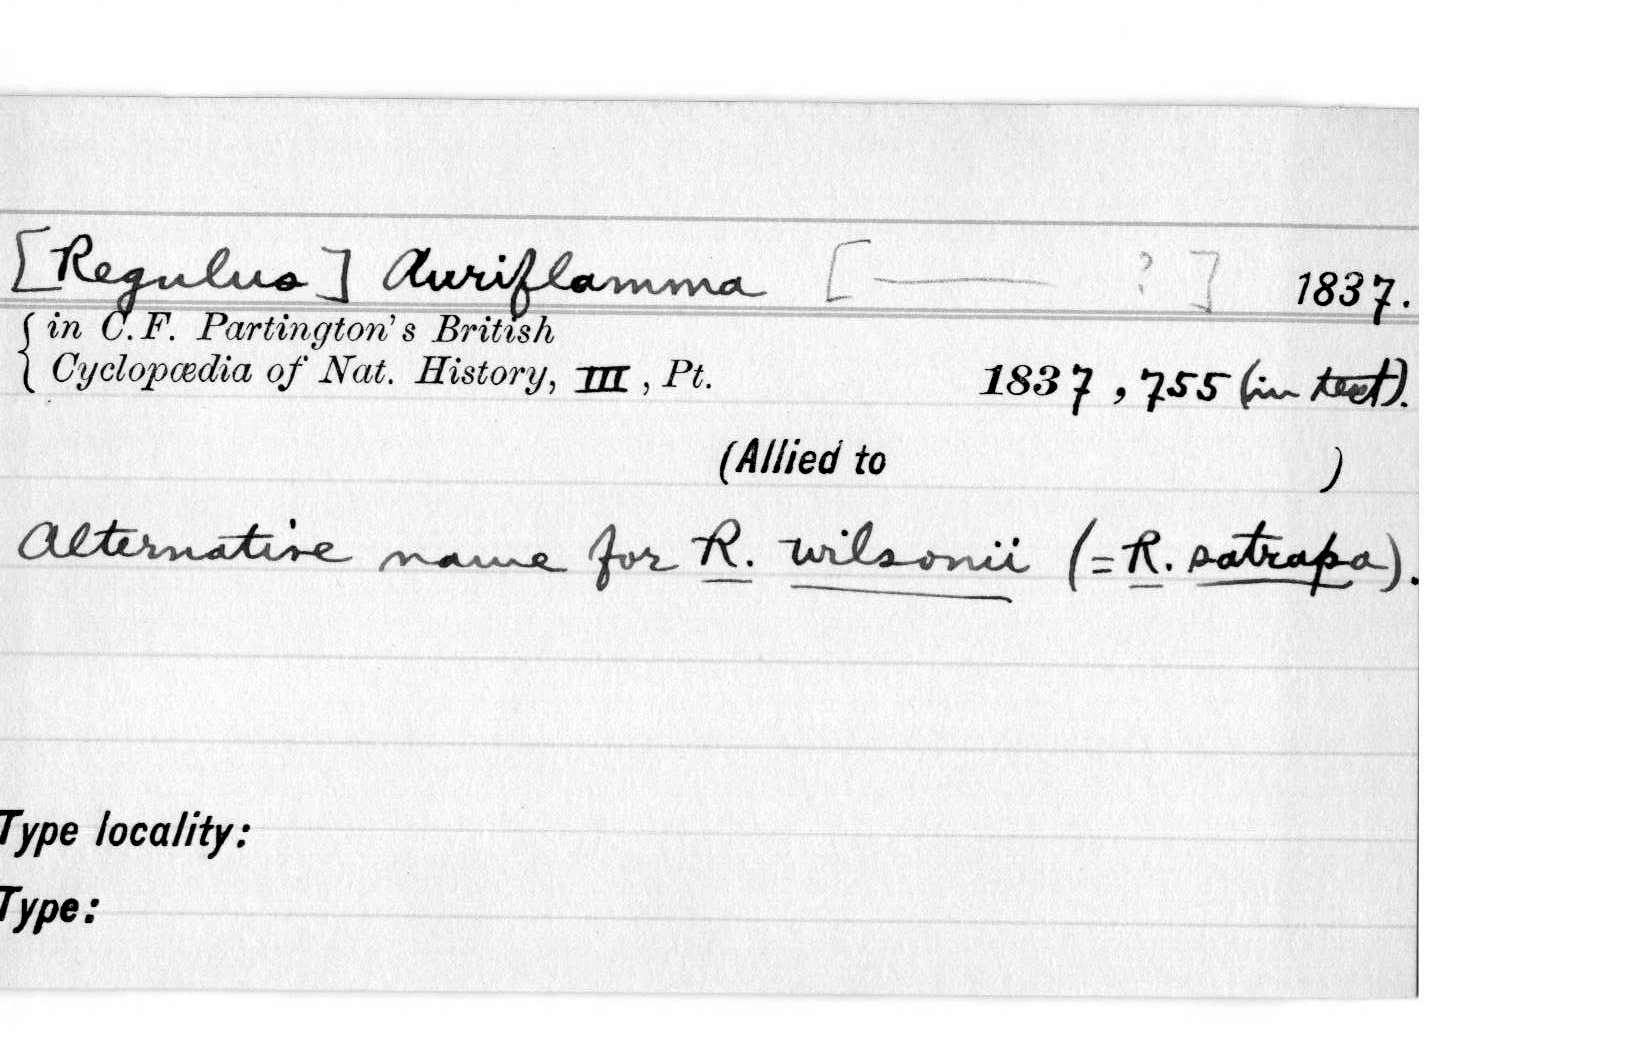 [Regulus] Auriflamma [—— ?] 1837.
in C.F. Partington's British
Cyclopædia of Nat. History, III, Pt. 1837, 755 (in text).
(Allied to )
Alternative name for R. wilsonii (=R. satrapa).
Type locality:
Type: